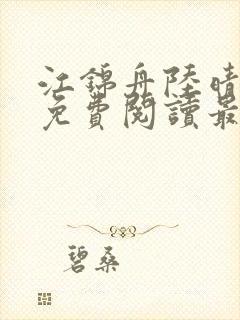 江錦舟陸晴
免費閱讀最
碧桑